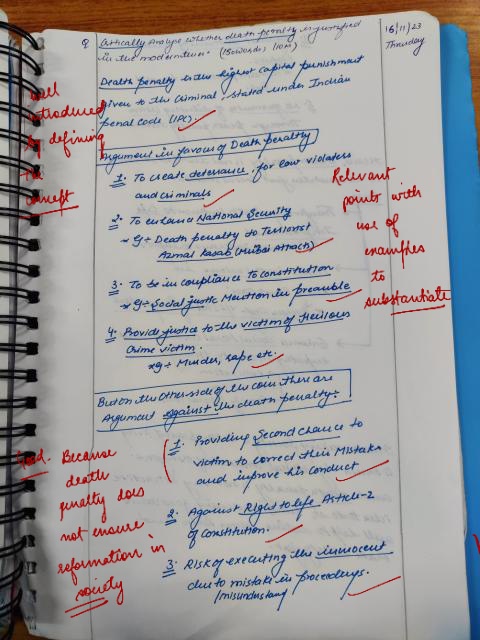 Q Critically Analyse whether death penalty is justified
in the modern era. (150 words) (10M)
16/11/23
Thursday
Death penalty is the highest capital punishment
given to the criminal, stated under Indian
penal Code (IPC).
well
introduced
by defining
the
concept
Argument in favour of Death penalty
1. To create deterrance for law violaters
and criminals
2. To enhance National Security
eg:- Death penalty to Terrorist
Azmal Kasab (Mubai Attack)
3. To be in compliance To constitution
eg:- Social justic Mention in preamble
4. Provide justice to the victim of Heilous
Crime victim.
eg:- Murder, rape etc.
Relevant
points with
use of
examples
to
substantiate
But on the Other side of the coin there are
Argument against the death penalty:-
1. Providing Second chance to
victim to correct their Mistake
and improve his conduct
2. Against Right to life Article-2
of Constitution.
3. Risk of executing the innocent
due to mistake in proceedings.
/misundustang
Because
death
penalty does
not ensure
reformation in
society